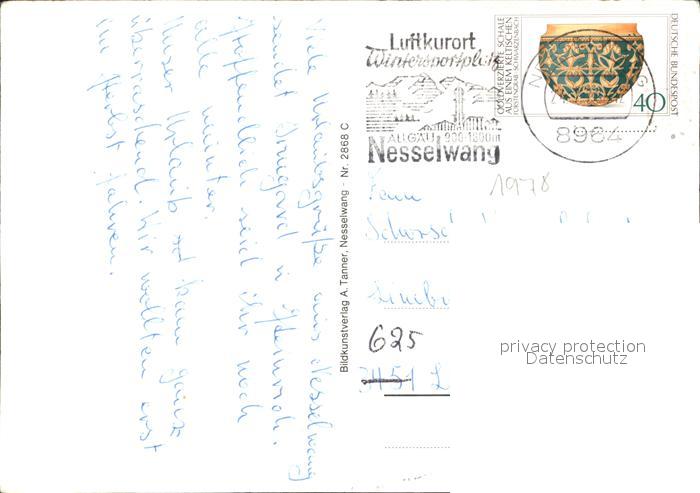 Viele Urlaubsgrüße aus Nesselwang
sendet Irmgard u. Heinrich.
Hoffentlich seid ihr noch
alle munter.
Unser Urlaub kam ganz
überraschend. Wir wollten erst
im Herbst fahren.
Bildkunstverlag A. Tanner, Nesselwang - Nr. 2868 C
Luftkurort
Wintersportplatz
ALLGÄU 900-1600m
Nesselwang
GOLDVERZIERTE SCHALE
AUS EINEM KELTISCHEN
FÜRSTENGRAB · SCHWARZENBACH
DEUTSCHE BUNDESPOST
40
8964
1978
625
privacy protection
Datenschutz